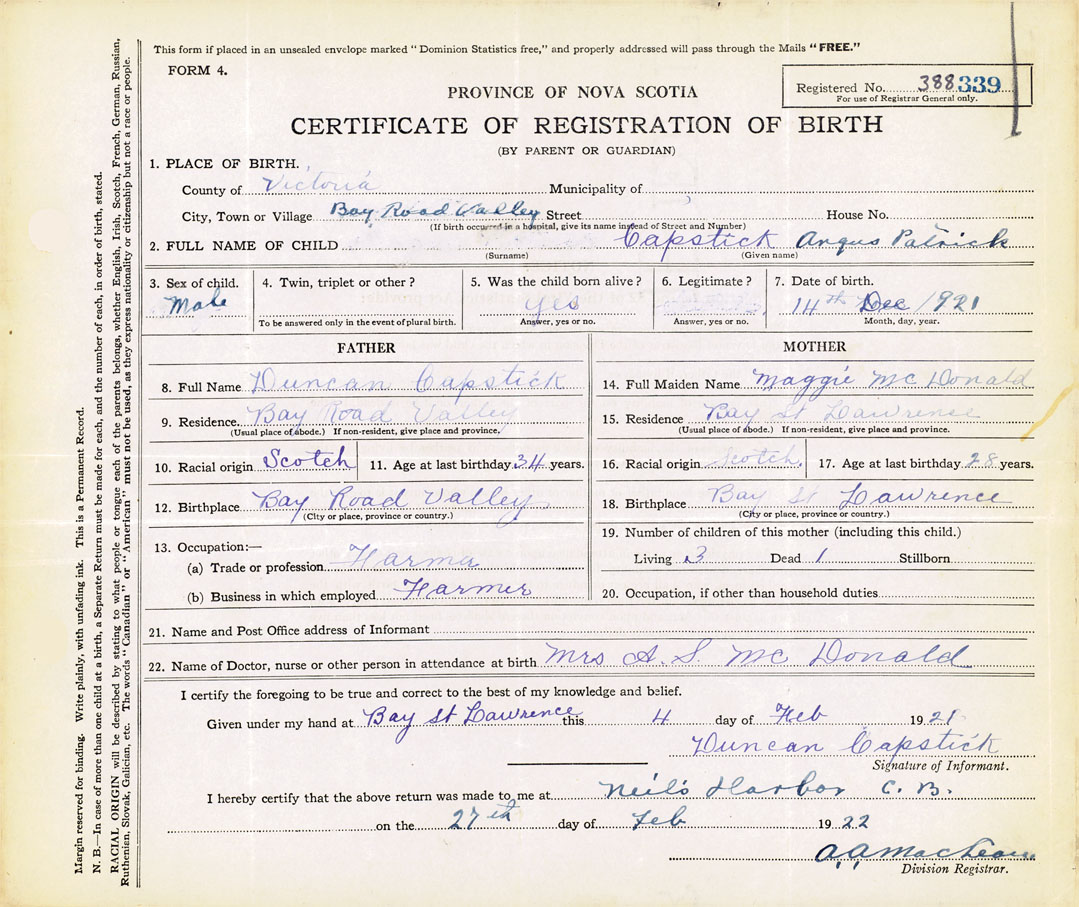 This form if placed in an unsealed envelope marked "Dominion Statistics free," and properly addressed will pass through the Mails "FREE."
FORM 4.
Registered No. 388339
For use of Registrar General only.
PROVINCE OF NOVA SCOTIA
CERTIFICATE OF REGISTRATION OF BIRTH
(BY PARENT OR GUARDIAN)
1. PLACE OF BIRTH.
County of Victoria Municipality of
City, Town or Village Bay Road Valley Street House No.
(If birth occurred in a hospital, give its name instead of Street and Number)
2. FULL NAME OF CHILD Capstick Angus Patrick
(Surname) (Given name)
3. Sex of child. 4. Twin, triplet or other? 5. Was the child born alive? 6. Legitimate? 7. Date of birth.
Male Yes 14th Dec 1921
To be answered only in the event of plural birth. Answer, yes or no. Answer, yes or no. Month, day, year.
FATHER
8. Full Name Duncan Capstick
9. Residence. Bay Road Valley
(Usual place of abode.) If non-resident, give place and province.
10. Racial origin Scotch 11. Age at last birthday 34 years.
12. Birthplace Bay Road Valley
(City or place, province or country.)
13. Occupation:—
(a) Trade or profession Farma
(b) Business in which employed Farmer
MOTHER
14. Full Maiden Name Maggie Mc Donald
15. Residence Bay St Lawrence
(Usual place of abode.) If non-resident, give place and province.
16. Racial origin Scotch. 17. Age at last birthday 28 years.
18. Birthplace Bay St Lawrence
(City or place, province or country.)
19. Number of children of this mother (including this child.)
Living 3 Dead 1 Stillborn
20. Occupation, if other than household duties
21. Name and Post Office address of Informant
22. Name of Doctor, nurse or other person in attendance at birth Mrs A. S. Mc Donald
I certify the foregoing to be true and correct to the best of my knowledge and belief.
Given under my hand at Bay St Lawrence this 4 day of Feb 1921
Duncan Capstick
Signature of Informant.
I hereby certify that the above return was made to me at Neil's Harbor C. B.
on the 27th day of Feb 1922
A. A. MacLean
Division Registrar.
Margin reserved for binding. Write plainly, with unfading ink. This is a Permanent Record.
N. B.—In case of more than one child at a birth, a Separate Return must be made for each, and the number of each, in order of birth, stated.
RACIAL ORIGIN will be described by stating to what people or tongue each of the parents belongs, whether English, Irish, Scotch, French, German, Russian,
Ruthenian, Slovak, Galician, etc. The words "Canadian" or "American" must not be used, as they express nationality or citizenship but not a race or people.